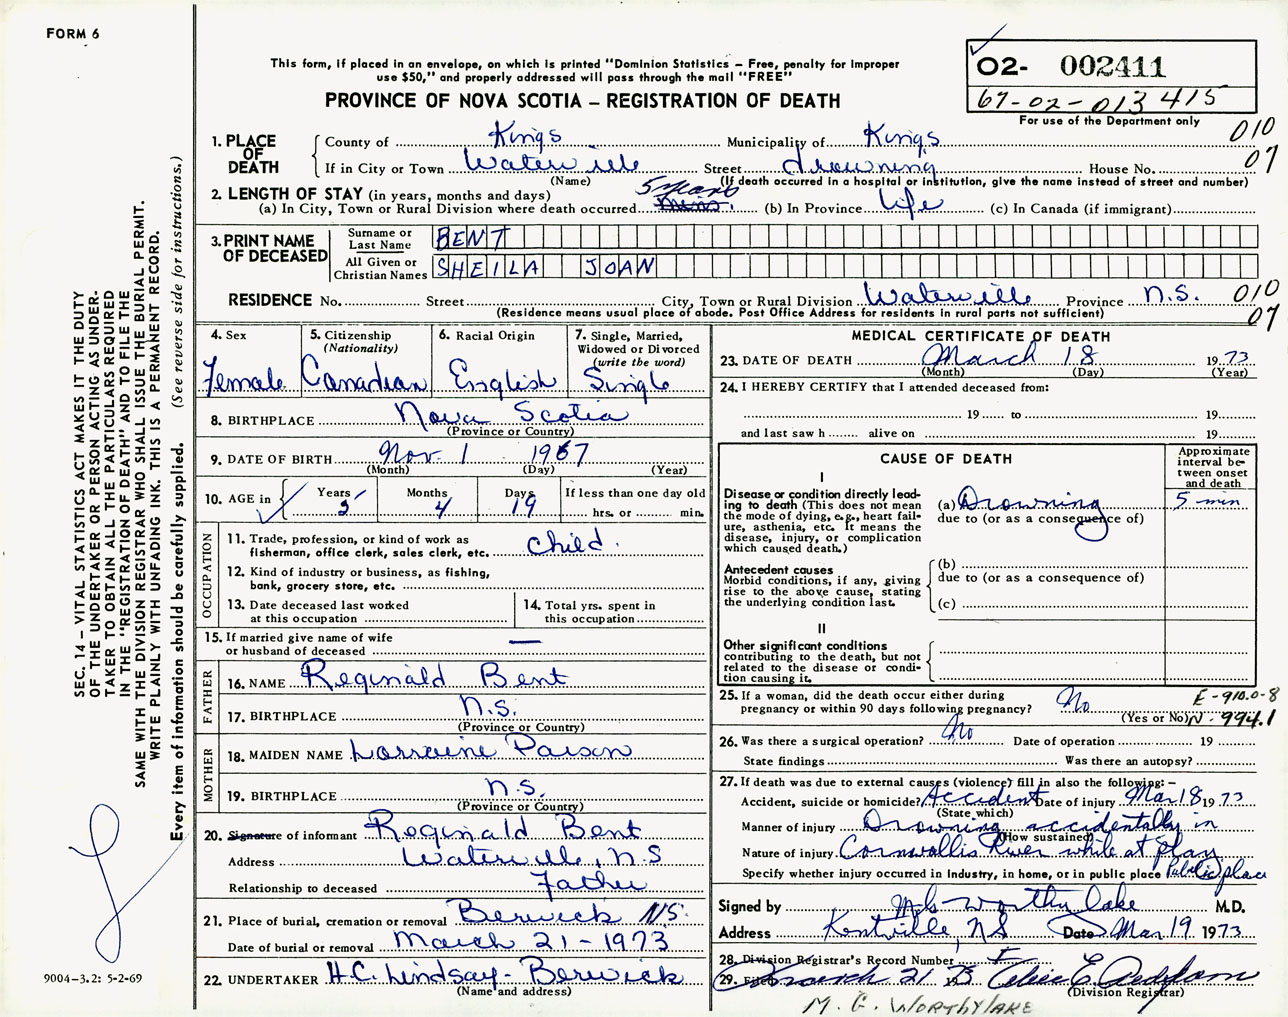 FORM 6
This form, if placed in an envelope, on which is printed "Dominion Statistics – Free, penalty for improper
use $50," and properly addressed will pass through the mail "FREE"
PROVINCE OF NOVA SCOTIA – REGISTRATION OF DEATH
O2- 002411
67-02-013415
For use of the Department only
010
07
1. PLACE OF DEATH County of Kings Municipality of Kings
If in City or Town Waterville Street drowning House No.
(Name) (If death occurred in a hospital or institution, give the name instead of street and number)
2. LENGTH OF STAY (in years, months and days) 5 years
(a) In City, Town or Rural Division where death occurred mins. (b) In Province life (c) In Canada (if immigrant)
3. PRINT NAME OF DECEASED
Surname or Last Name BENT
All Given or Christian Names SHEILA JOAN
RESIDENCE No. Street City, Town or Rural Division Waterville Province N.S. 010
(Residence means usual place of abode. Post Office Address for residents in rural parts not sufficient) 07
4. Sex
Female
5. Citizenship
(Nationality)
Canadian
6. Racial Origin
English
7. Single, Married,
Widowed or Divorced
(write the word)
Single
8. BIRTHPLACE Nova Scotia
(Province or Country)
9. DATE OF BIRTH Nov. 1 1967
(Month) (Day) (Year)
10. AGE in Years Months Days If less than one day old
5 4 19 hrs. or min.
OCCUPATION
11. Trade, profession, or kind of work as
fisherman, office clerk, sales clerk, etc. child.
12. Kind of industry or business, as fishing,
bank, grocery store, etc.
13. Date deceased last worked
at this occupation
14. Total yrs. spent in
this occupation
15. If married give name of wife
or husband of deceased —
FATHER
16. NAME Reginald Bent
17. BIRTHPLACE N.S.
(Province or Country)
MOTHER
18. MAIDEN NAME Lorraine Parson
19. BIRTHPLACE N.S.
(Province or Country)
20. Signature of informant Reginald Bent
Address Waterville, N.S
Relationship to deceased Father
21. Place of burial, cremation or removal Berwick N.S.
Date of burial or removal March 21-1973
22. UNDERTAKER H.C. Lindsay- Berwick
(Name and address)
MEDICAL CERTIFICATE OF DEATH
23. DATE OF DEATH March 18 1973
(Month) (Day) (Year)
24. I HEREBY CERTIFY that I attended deceased from:
19 to 19
and last saw h alive on 19
CAUSE OF DEATH
Approximate
interval be-
tween onset
and death
I
Disease or condition directly lead-
ing to death (This does not
mean
the mode of dying, e.g., heart fail-
ure, asthenia, etc. It means the
disease, injury, or complication
which caused death.)
(a) Drowning 5 min
due to (or as a consequence of)
Antecedent causes
Morbid conditions, if any, giving
rise to the above cause, stating
the underlying condition last.
(b)
due to (or as a consequence of)
(c)
II
Other significant conditions
contributing to the death, but not
related to the disease or condi-
tion causing it.
25. If a woman, did the death occur either during
pregnancy or within 90 days following pregnancy? No
(Yes or No)
E-910.0-8
N-994.1
26. Was there a surgical operation? No Date of operation 19
State findings Was there an autopsy?
27. If death was due to external causes (violence) fill in also the following:–
Accident, suicide or homicide? Accident Date of injury Mar 18 1973
(State which)
Manner of injury Drowning accidentally in
(How sustained)
Nature of injury Cornwallis River while at play
Specify whether injury occurred in industry, in home, or in public place Public place
Signed by Worthylake M.D.
Address Kentville, NS Date Mar 19 1973
28. Division Registrar's Record Number
29. March 21
(Division Registrar)
M. G. WORTHYLAKE
SEC. 14 – VITAL STATISTICS ACT MAKES IT THE DUTY
OF THE UNDERTAKER OR PERSON ACTING AS UNDER-
TAKER TO OBTAIN ALL THE PARTICULARS REQUIRED
IN THE "REGISTRATION OF DEATH" AND TO FILE THE
SAME WITH THE DIVISION REGISTRAR WHO SHALL ISSUE THE BURIAL PERMIT.
WRITE PLAINLY WITH UNFADING INK. THIS IS A PERMANENT RECORD.
Every item of information should be carefully supplied. (See reverse side for instructions.)
9004–3.2: 5-2-69